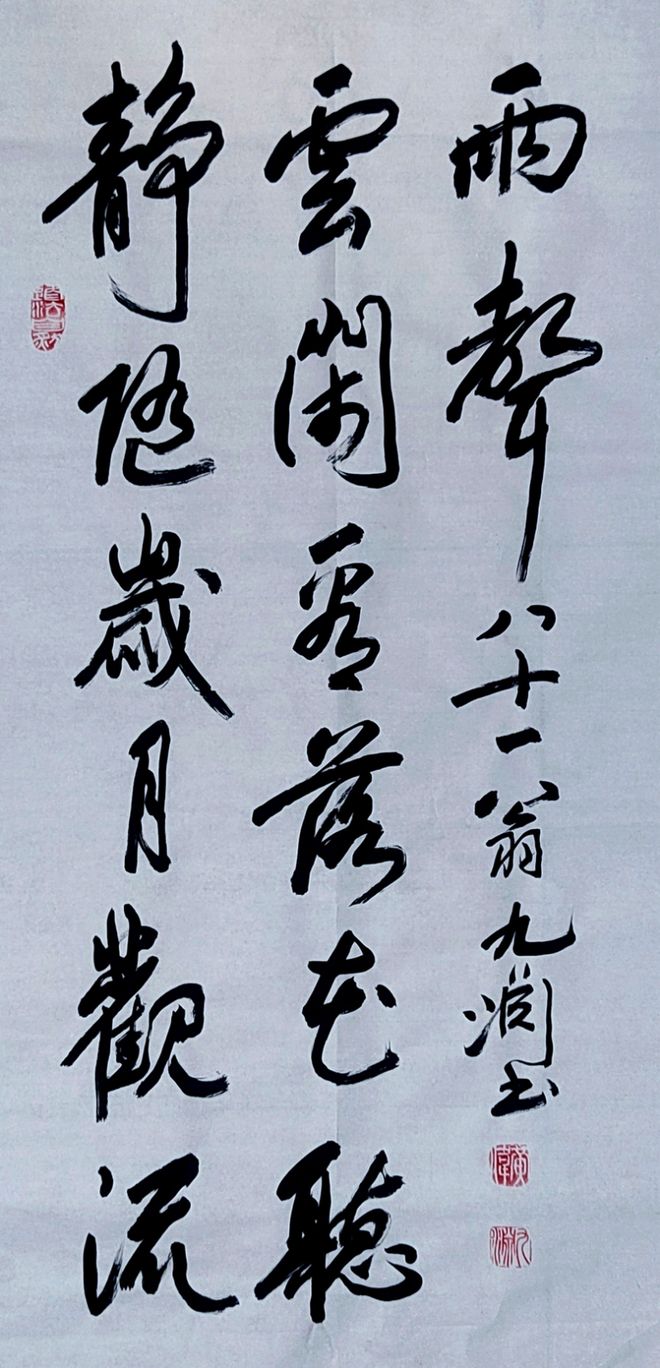 静随歲月觀流
雲閑看落花聽
雨聲八十一翁九淵书